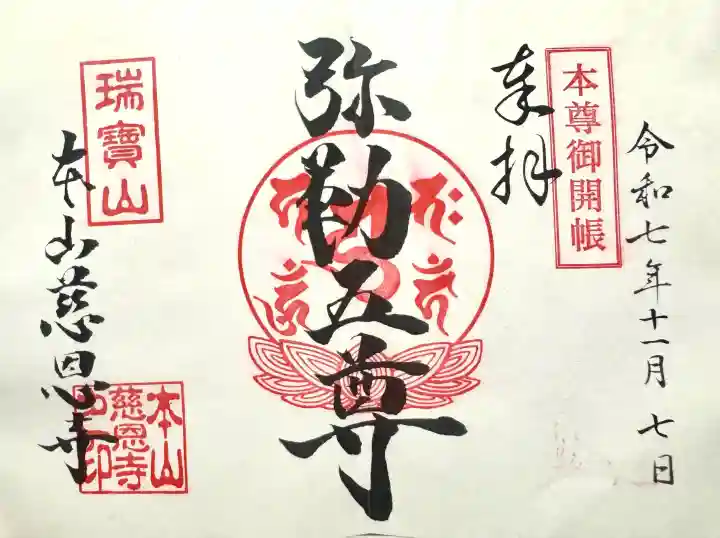 令和七年十一月七日
本尊御開帳
奉拝
弥勒五尊
瑞寳山
本山慈恩寺
本山
慈恩寺